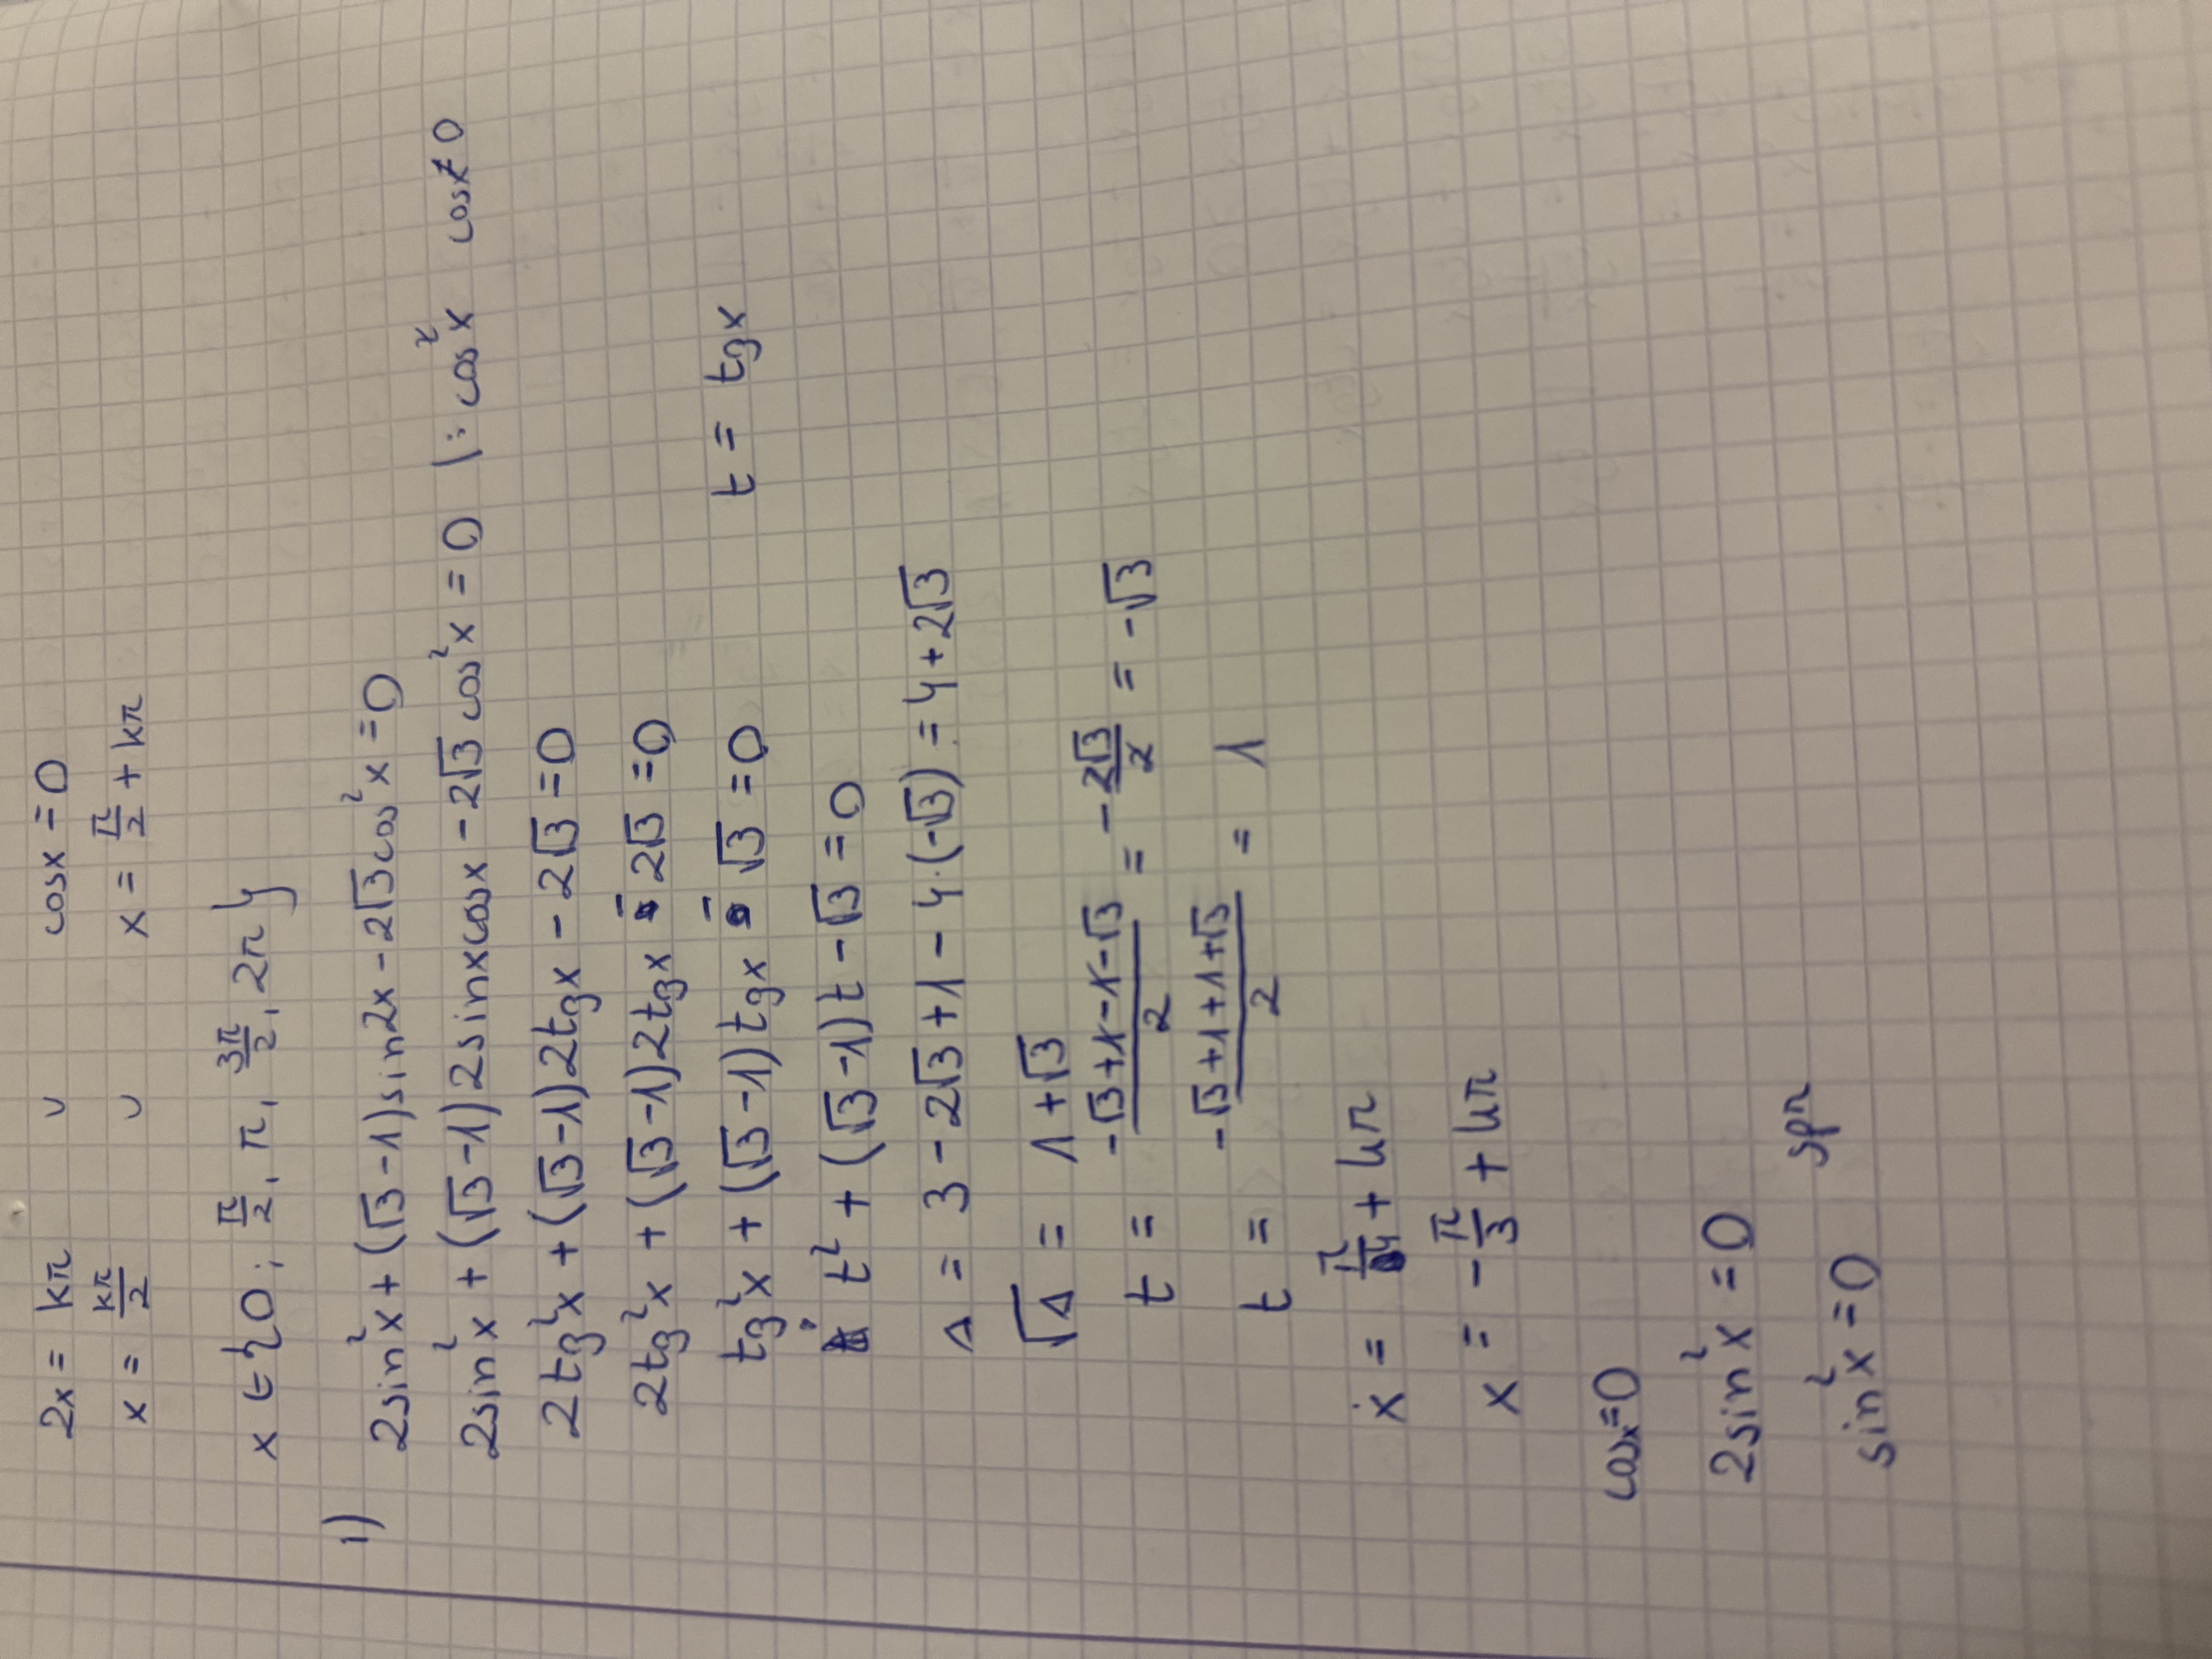 2x = kπ ∪ cosx = 0
x = kπ/2 ∪ x = π/2 + kπ
x ∈ {0; π/2, π, 3π/2, 2π}
i) 2sin²x + (√3 -1)sin2x - 2√3cos²x = 0
2sin²x + (√3 -1)2sinxcosx - 2√3 cos²x = 0 |: cos²x cosx≠0
2tg²x + (√3 -1)2tgx - 2√3 = 0
2tg²x + (√3 -1)2tgx - 2√3 = 0
tg²x + (√3 -1)tgx - √3 = 0 t = tgx
t² + (√3 -1)t - √3 = 0
Δ = 3 - 2√3 + 1 - 4·(-√3) = 4 + 2√3
√Δ = 1 + √3
t = (-√3+1-1-√3)/2 = -2√3/2 = -√3
t = (-√3+1+1+√3)/2 = 1
x = π/4 + kπ
x = -π/3 + kπ
cosx=0
2sin²x = 0
sin²x = 0 spr